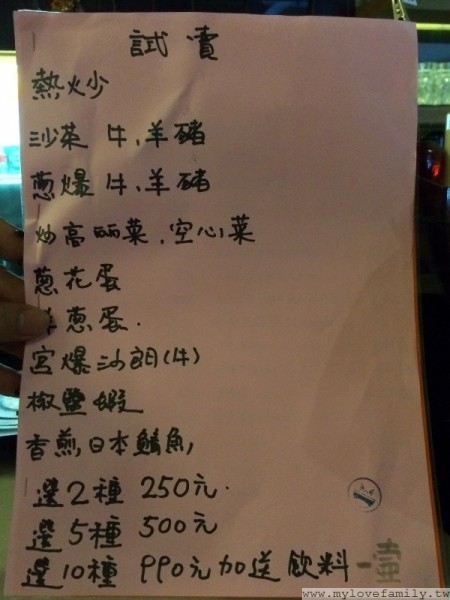 試賣
熱炒
沙茶 牛、羊豬
蔥爆 牛、羊豬
炒高丽菜、空心菜
蔥花蛋
洋蔥蛋.
宮爆沙朗(牛)
椒鹽蝦
香煎日本鯖魚,
選2種 250元.
選5種 500元
選10種 990元加送飲料一壺
www.mylovefamily.tw